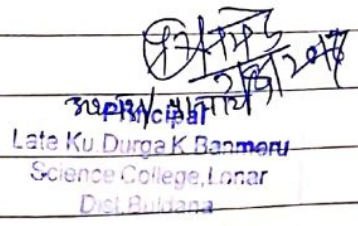 अध्यक्ष/प्राचार्य
Principal
Late Ku. Durga K. Banmeru
Science College, Lonar
Dist. Buldana